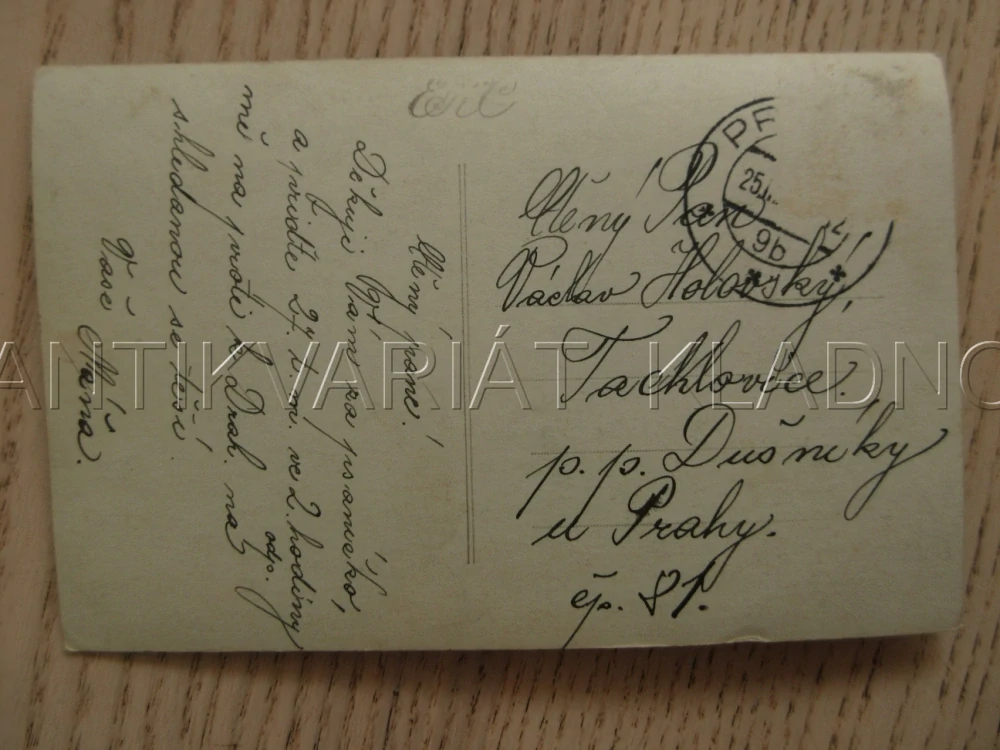 Ctěný pane!
Děkuji Vám za psaníčko,
a přijdte 27. t. m. ve 2. hodiny
odp.
mě na proti k Drah. na
shledanou se těší
Vaše Máňa.
Ctěný Pan
Václav Holovský,
Tachlovice.
p. p. Dušníky
u Prahy.
čp. 81.
PR
25.
9b
ANTIKVARIÁT KLADNO